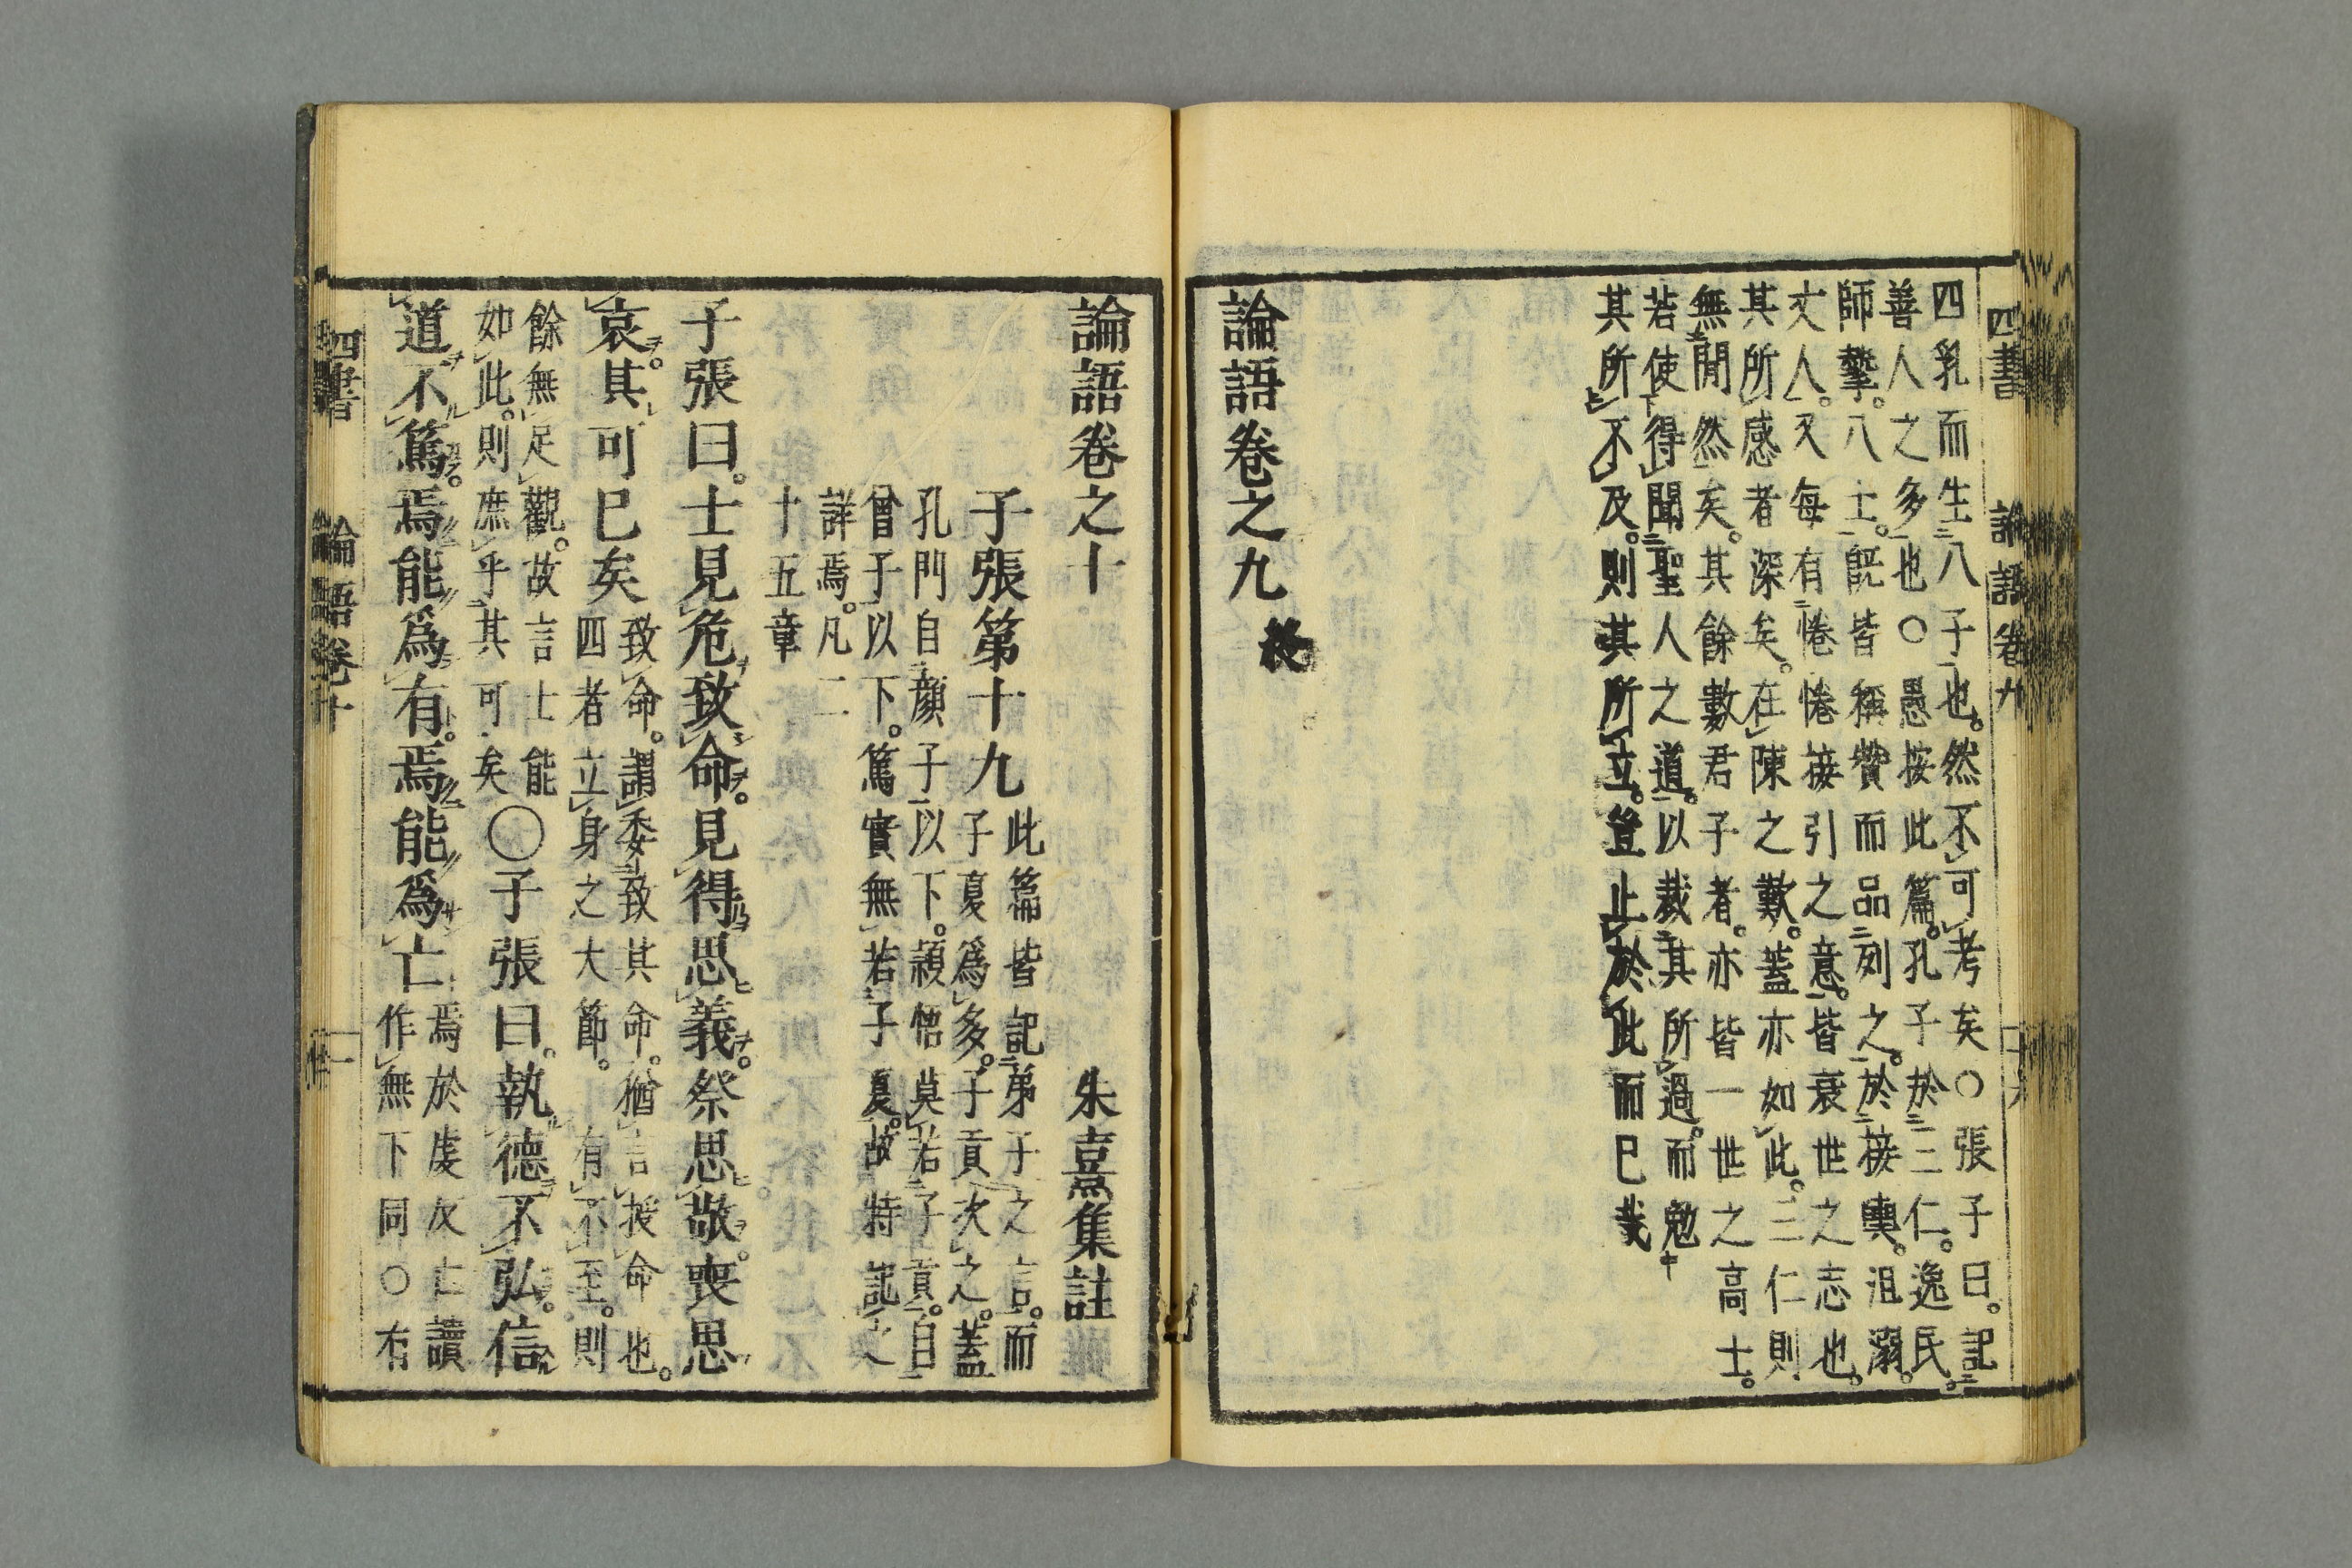 四書 論語卷九
四乳而生八子也。然不可考矣○張子曰。記
善人之多也○愚按此篇。孔子於三仁。逸民。
師摯。八士。既皆稱贊而品列之。於接輿。沮溺。
丈人。又每有惓惓接引之意。皆衰世之志也。
其所感者深矣。在陳之歎。蓋亦如此。三仁則
無間然矣。其餘數君子者。亦皆一世之高士。
若使得聞聖人之道。以裁其所過。而勉
其所不及。則其所立。豈止於此而已哉
論語卷之九 終
論語卷之十
朱熹集註
子張第十九
此篇皆記弟子之言。而
子夏爲多。子貢次之。蓋
孔門自顏子以下。穎悟莫若子貢。自
曾子以下。篤實無若子夏。故特記之
詳焉。凡二
十五章
子張曰。士見危致命。見得思義。祭思敬。喪思
哀。其可已矣
致命。謂委致其命。猶言授命也。
四者立身之大節。一有不至。則
餘無足觀。故言士能
如此。則庶乎其可矣
○子張曰。執德不弘。信
道不篤。焉能爲有。焉能爲亡
焉於虔反亡讀
作無下同○有
四書 論語卷十